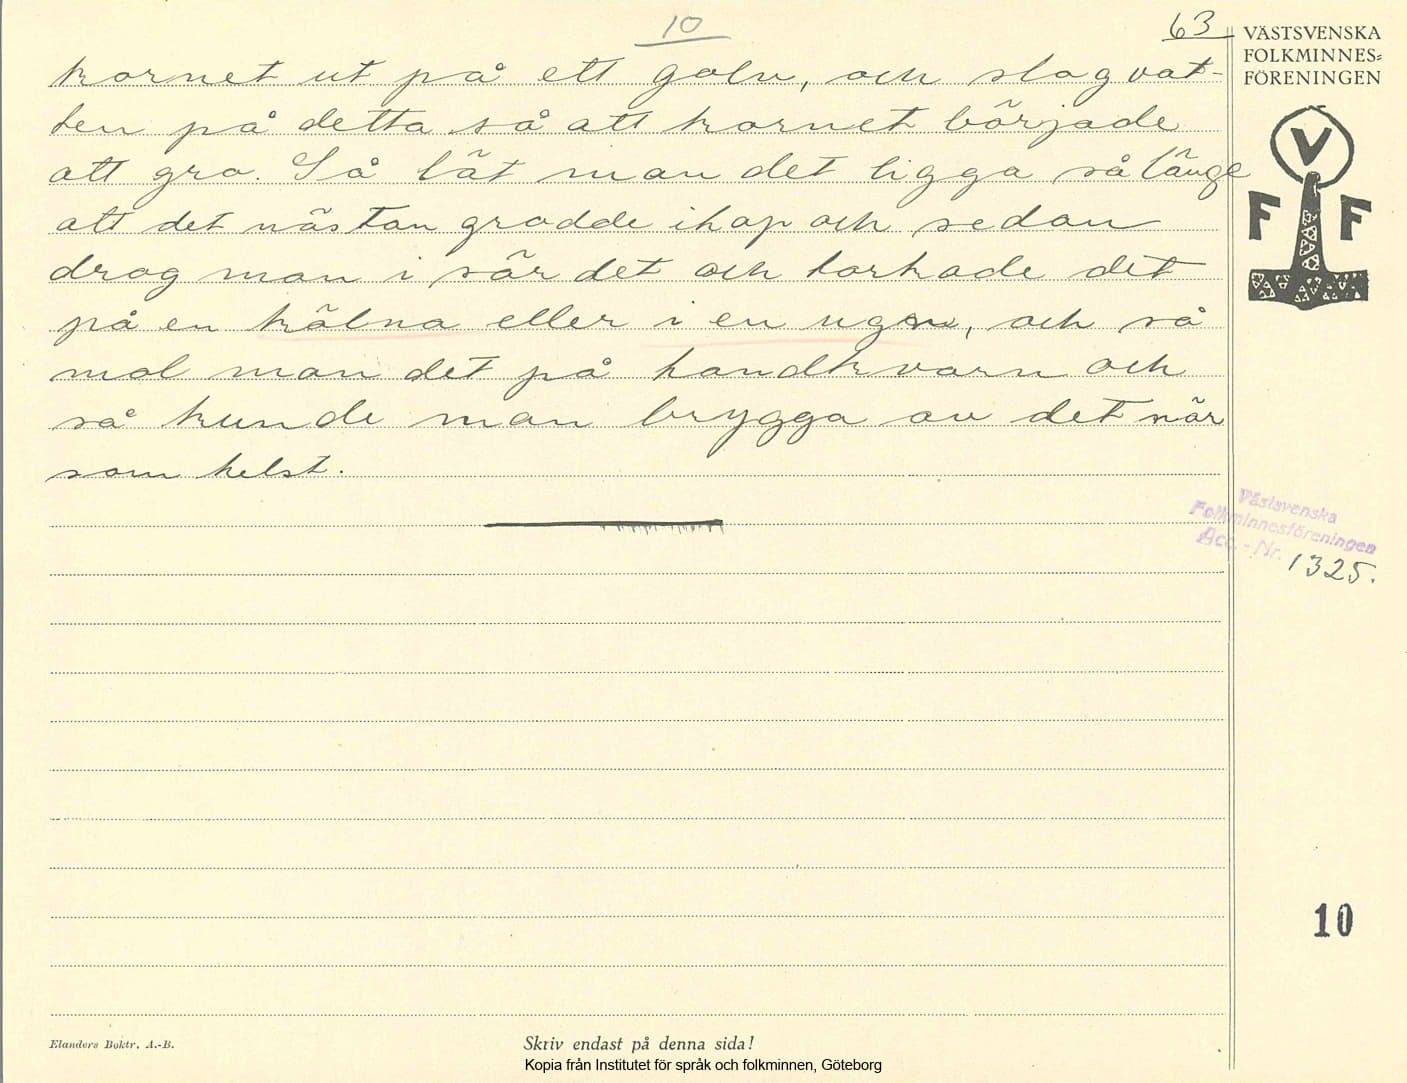 10
63
VÄSTSVENSKA
FOLKMINNES=
FÖRENINGEN
kornet ut på ett golv, och slog vat-
ten på detta så att kornet började
att gro. Så lät man det ligga så länge
att det nästan grodde ihop och sedan
drog man i sär det och torkade det
på en kälna eller i en ugn, och så
mol man det på handkvarn och
så kunde man brygga av det när
som helst.
V
F F
Västsvenska
Folkminnesföreningen
Acc. - Nr. 1325.
10
Elanders Boktr. A.-B.
Skriv endast på denna sida!
Kopia från Institutet för språk och folkminnen, Göteborg